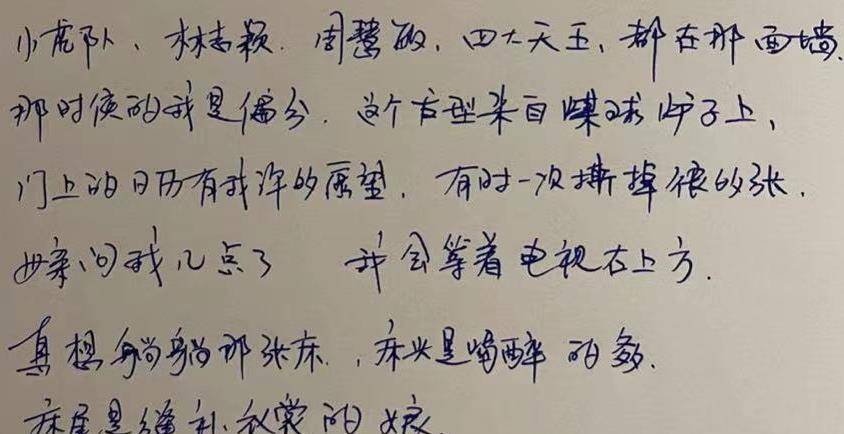 小虎队、林志颖、周慧敏、四大天王、都在那面墙.
那时侯的我是偏分.这个发型来自煤球炉子上,
门上的日历有我许的愿望.有时一次撕掉很多张.
母亲问我几点了 我会等着电视右上方.
真想躺躺那张床.,床头是喝醉的爹.
床尾是缝补衣裳的娘.